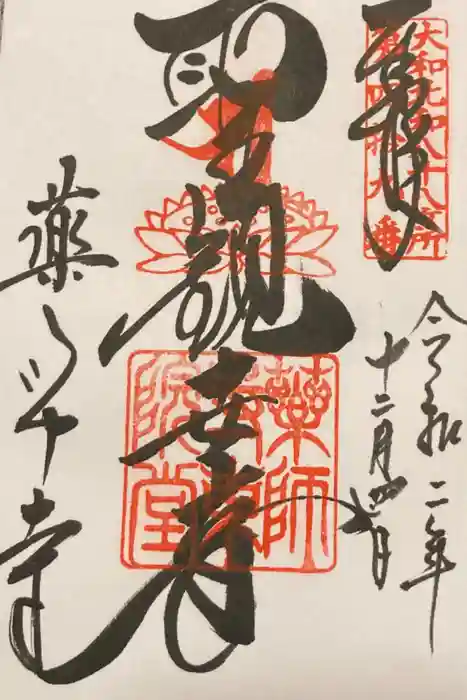 奉拝
大和北部八十八ヶ所
第四拾九番
令和二年
十二月四日
聖観世音
薬師寺